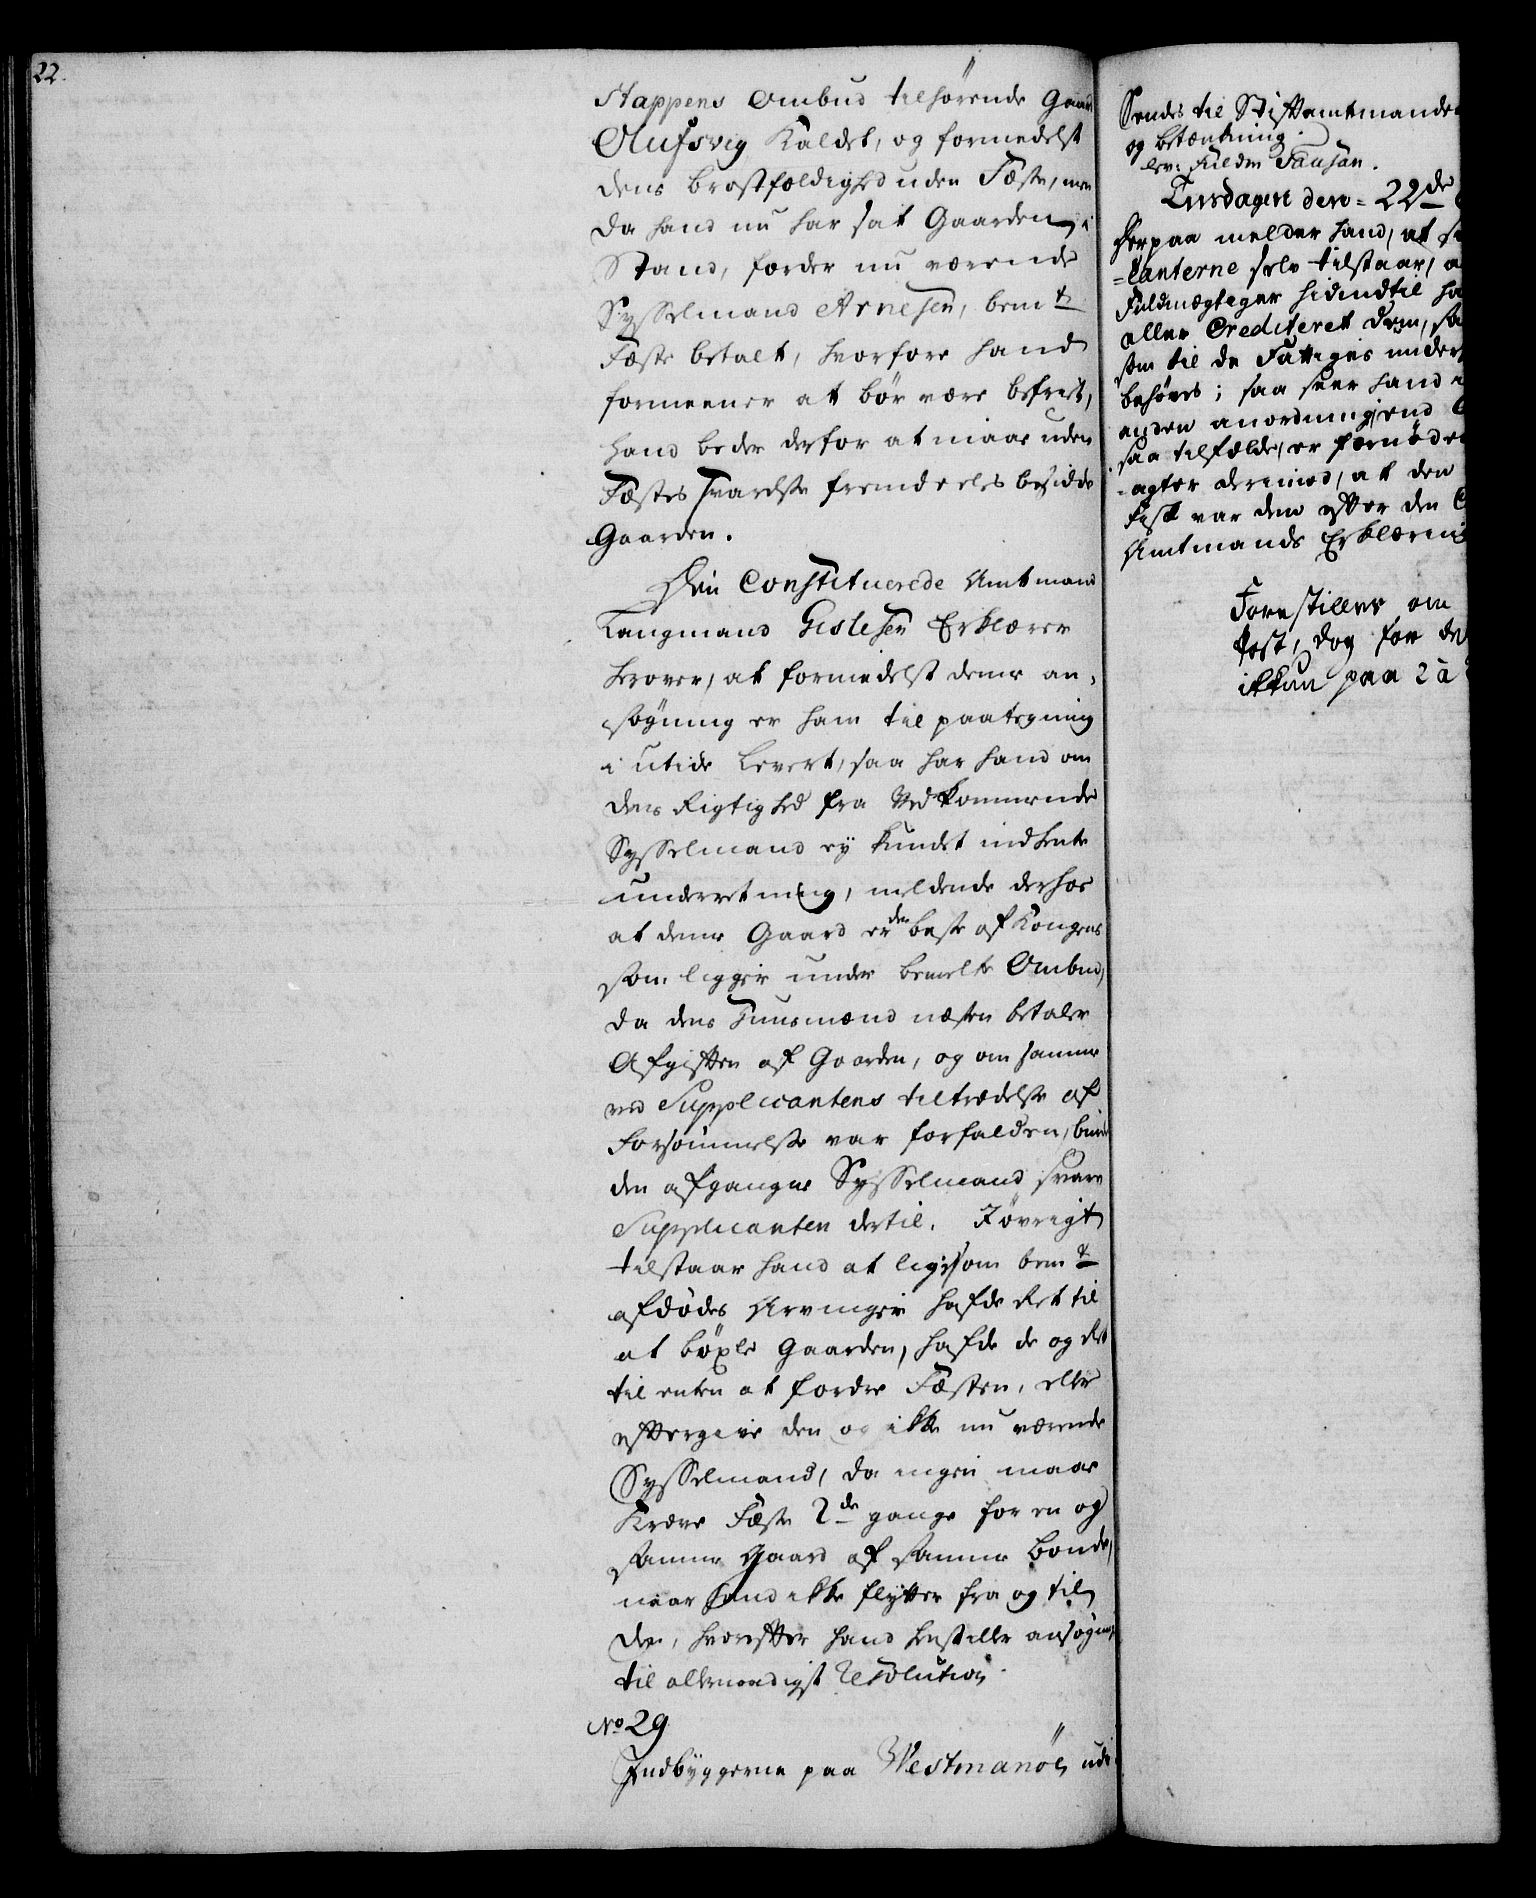 22.
Stappens Ombud tilhørende Gaard
Olufsvig Kaldet, og formedelst
dens brøstfældighed uden Fæste, men
da hand nu har sat Gaarden i
Stand, forder nu værende
Sysselmand Arnesen, bemte
Fæste betalt, hvorfore hand
formeener at bør være befriet,
hand beder derfor at maae uden
Fæstes svarelse fremdeeles besidde
Gaarden.
Den Constituerede Amtmand
Laugmand Gislesen Erklærer
herover, at formedelst denne an-
søgning er ham til paategning
i utide Levert, saa har hand om
dens Rigtighed fra Vedkommende
Sysselmand ey kundet indhente
underretning, meldende derhos
at denne Gaard er den beste af Kongens
som ligger under bemelte Ombud,
da dens Huusmænd næsten betaler
Afgiften af Gaarden, og om samme
ved Supplicantens tiltrædelse af
forsømmelse var forfalden, burde
den afgangne Sysselmand svare
Supplicanten dertil. Iøvrigt
tilstaar hand at ligesom bemte
afdødes Arvinger hafde Ret til
at bøxle Gaarden, hafde de og Ret
til enten at fordre Fæsten, eller
eftergive den og ikke nu værende
Sysselmand, da ingen maae
Kræve Fæste 2de gange for en og
samme Gaard af samme bonde,
naar hand ikke flytter fra og til
den, hvorefter hand henstiller ansøgning
til allernaadigst Resolution.
No 29
Indbyggerne paa Westmanøe udi
Sendes til Stiftamtmanden
og betænkning.
lev: Fuldm
Tiisdagen den 22de
Herpaa melder hand, at
=canterne selv tilstaar, a
Fuldmægtiger hidindtil ha
eller Crediteret dem, sa
som til de Fattiges under
behøves; saa seer hand
anden anordning, end
saa tilfælde, er fornøden
-agter dermed, at den
fisk var dem efter den
Amtmands Erklæring
Forestilles om
Post, dog for de
ikkun paa 2 à